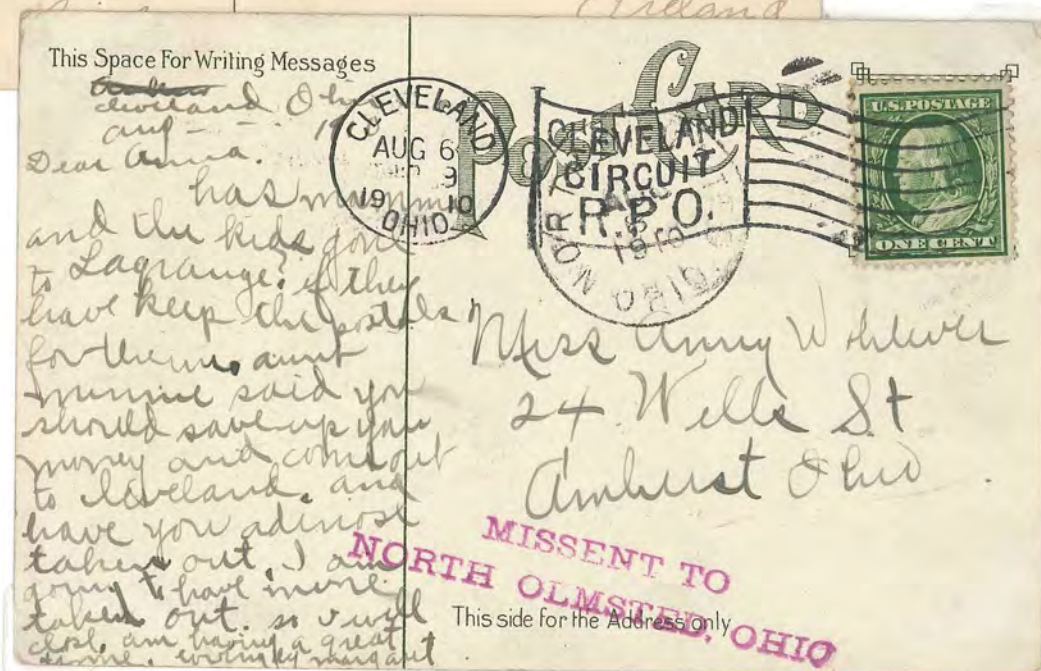 Ireland
This Space For Writing Messages
POST CARD
Cleveland Ohio
aug - - 1
Dear Anna.
has mamma
and the kids gone
to Lagrange? if they
have keep the postals
for them. aunt
minnie said you
should save up your
money and come out
to cleveland. and
have you adinose
taken out. I am
going to have mine
taken out. so I will
close. am having a great
time. margaret
CLEVELAND
AUG 6
1910
OHIO
CLEVELAND
CIRCUIT
R.P.O.
NORTH
OHIO
1910
U.S. POSTAGE
ONE CENT
Miss Anny Wohlever
24 Wells St
Amhurst Ohio.
MISSENT TO
NORTH OLMSTED, OHIO
This side for the Address only